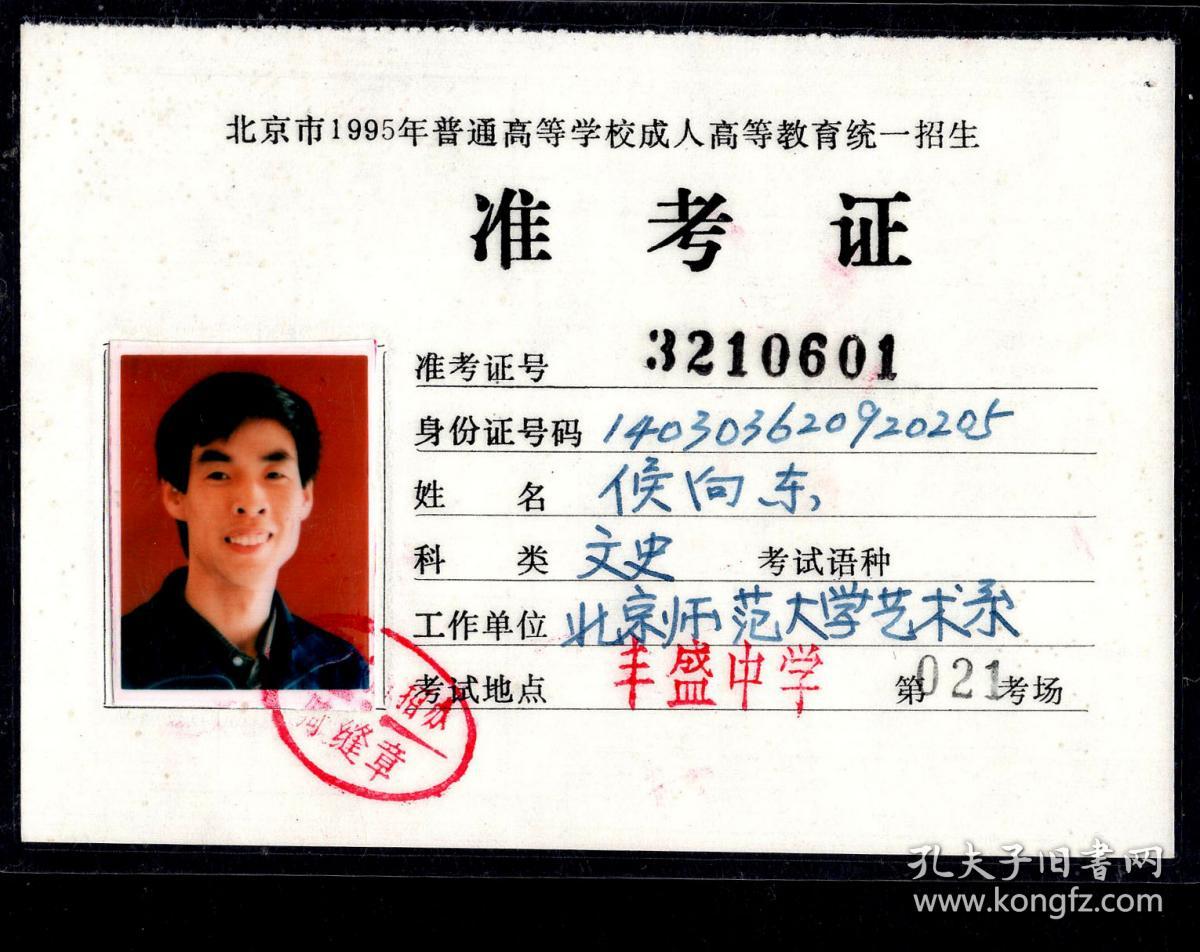 北京市1995年普通高等学校成人高等教育统一招生
准考证
准考证号 3210601
身份证号码 140303620920205
姓名 侯向东
科类 文史 考试语种
工作单位 北京师范大学艺术系
考试地点 丰盛中学 第021考场
招办
缝章
孔夫子旧书网
www.kongfz.com